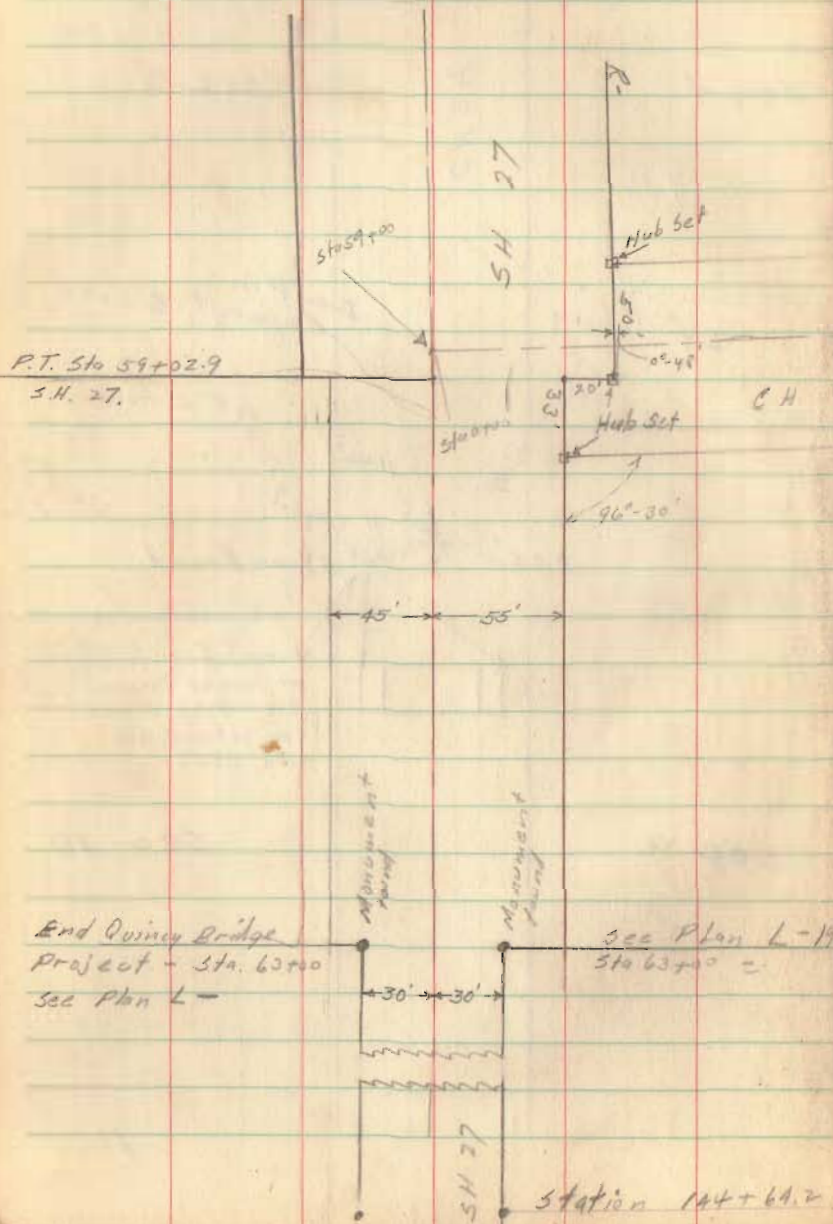 SH 27
Hub Set
Sta 59+00
50'
P.T. Sta 59+02.9
S.H. 27.
0°-48'
20'
33'
Sta 0+00
C H
Hub Set
96°-30'
45' 55'
Monument found
Monument found
End Quincy Bridge
Project - Sta. 63+00
See Plan L-
See Plan L-19
Sta 63+00 =
30' 30'
SH 27
Station 144+64.2